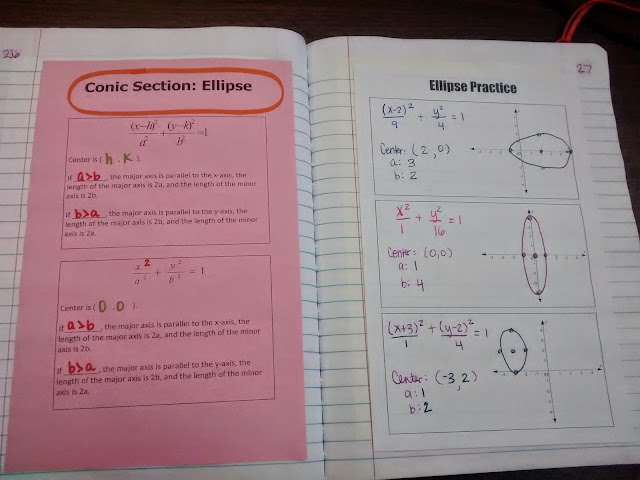 26
Conic Section: Ellipse
(x-h)²/a² + (y-k)²/b² = 1
Center is ( h , k ).
If a>b, the major axis is parallel to the x-axis, the
length of the major axis is 2a, and the length of the minor
axis is 2b.
If b>a, the major axis is parallel to the y-axis, the
length of the major axis is 2b, and the length of the minor
axis is 2a.
x²/a² + y²/b² = 1
Center is ( 0 , 0 ).
If a>b, the major axis is parallel to the x-axis, the
length of the major axis is 2a, and the length of the minor
axis is 2b.
If b>a, the major axis is parallel to the y-axis, the
length of the major axis is 2b, and the length of the minor
axis is 2a.
27
Ellipse Practice
(x-2)²/9 + y²/4 = 1
Center: (2, 0)
a: 3
b: 2
x²/1 + y²/16 = 1
Center: (0,0)
a: 1
b: 4
(x+3)²/1 + (y-2)²/4 = 1
Center: (-3, 2)
a: 1
b: 2